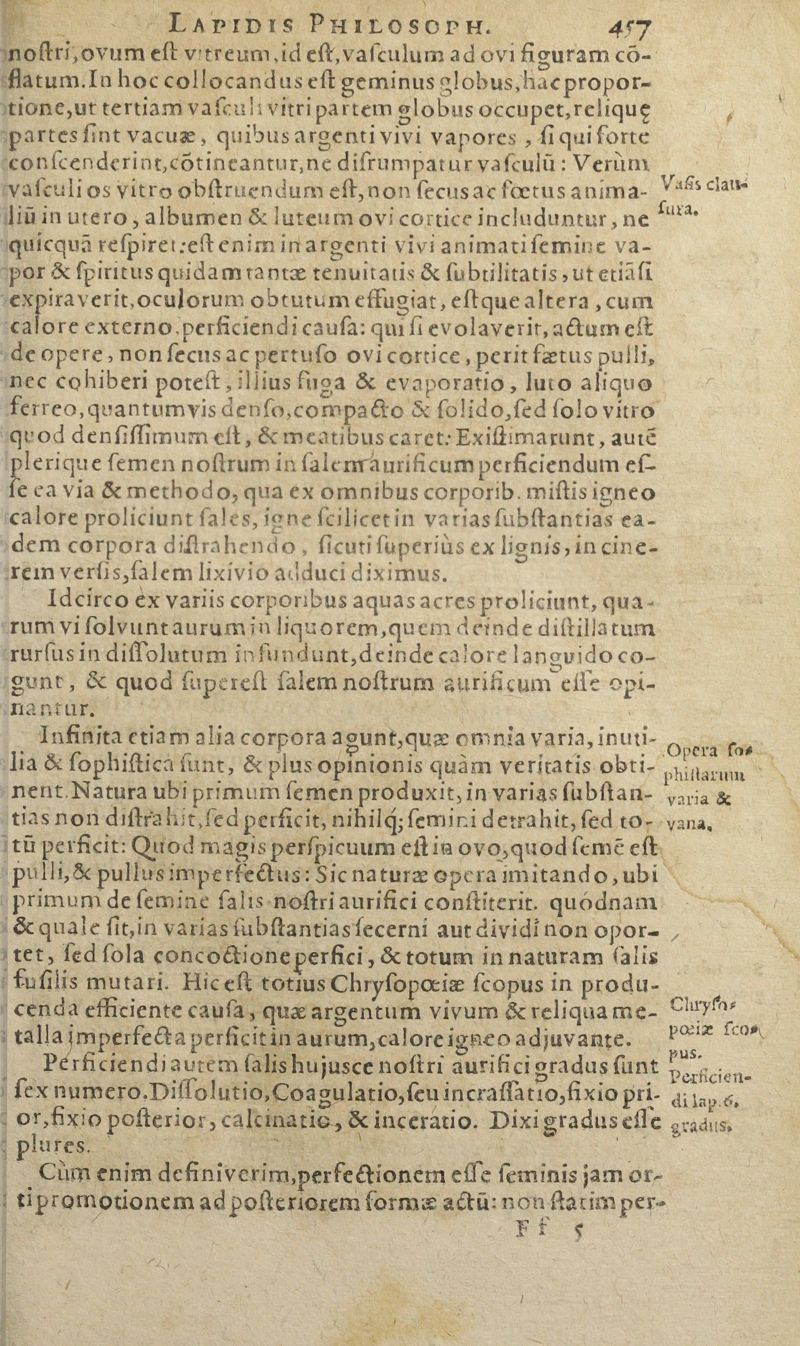 LAPIDIS PHILOSOPH. 457
noſtri,ovum eſt vitreum,id eſt,vaſculum ad ovi figuram cō-
flatum.In hoc collocandus eſt geminus globus,hac propor-
tione,ut tertiam vaſculi vitri partem globus occupet,reliquę
partes ſint vacuæ, quibus argenti vivi vapores , ſi qui forte
conſcenderint,cōtineantur,ne diſrumpatur vaſculū : Verùm
vaſculi os vitro obſtruendum eſt,non ſecus ac fœtus anima-
Vaſis clau-
liū in utero, albumen & luteum ovi cortice includuntur, ne
ſura.
quicquā reſpiret:eſt enim in argenti vivi animati ſemine va-
por & ſpiritus quidam tantæ tenuitatis & ſubtilitatis,ut etiāſi
expiraverit,oculorum obtutum effugiat, eſtque altera ,cum
calore externo,perficiendi cauſa: qui ſi evolaverit, actum eſt
de opere, non ſecus ac pertuſo ovi cortice, perit fætus pulli,
nec cohiberi poteſt, illius fuga & evaporatio, luto aliquo
ferreo,quantumvis denſo,compacto & ſolido,ſed ſolo vitro
quod denſiſſimum eſt, & meatibus caret: Exiſtimarunt, autē
plerique ſemen noſtrum in ſalem aurificum perficiendum eſ-
ſe ea via & methodo, qua ex omnibus corporib. miſtis igneo
calore proliciunt ſales, igne ſcilicet in varias ſubſtantias ea-
dem corpora diſtrahendo , ſicuti ſuperiùs ex lignis, in cine-
rem verſis,ſalem lixivio adduci diximus.
Idcirco ex variis corporibus aquas acres proliciunt, qua-
rum vi ſolvunt aurum in liquorem,quem deinde diſtillatum
rurſus in diſſolutum infundunt,deinde calore languido co-
gunt, & quod ſupereſt ſalem noſtrum aurificum eſſe opi-
nantur.
Infinita etiam alia corpora agunt,quæ omnia varia, inuti-
Opera ſo-
lia & ſophiſtica ſunt, & plus opinionis quàm veritatis obti-
phiſtarum
nent.Natura ubi primum ſemen produxit, in varias ſubſtan-
varia &
tias non diſtrahit,ſed perficit, nihilq; ſemini detrahit, ſed to-
vana.
tū perficit: Quod magis perſpicuum eſt in ovo,quod ſemē eſt
pulli,& pullus imperfectus: Sic naturæ opera imitando, ubi
primum de ſemine ſalis noſtri aurifici conſtiterit. quòdnam
& quale ſit,in varias ſubſtantias ſecerni aut dividi non opor-
tet, ſed ſola concoctione perfici, & totum in naturam ſalis
fuſilis mutari. Hic eſt totius Chryſopœiæ ſcopus in produ-
cenda efficiente cauſa, quæ argentum vivum & reliqua me-
Chryſo-
talla imperfecta perficit in aurum,calore igneo adjuvante.
pœiæ ſco-
pus.
Perficiendi autem ſalis hujusce noſtri aurifici gradus ſunt
Perficien-
ſex numero.Diſſolutio,Coagulatio,ſeu incraſſatio,fixio pri-
di lap. 6.
or,fixio poſterior, calcinatio, & inceratio. Dixi gradus eſſe
gradus.
plures.
Cùm enim definiverim,perfectionem eſſe ſeminis jam or-
ti promotionem ad poſteriorem formæ actū: non ſtatim per-
Ff 5